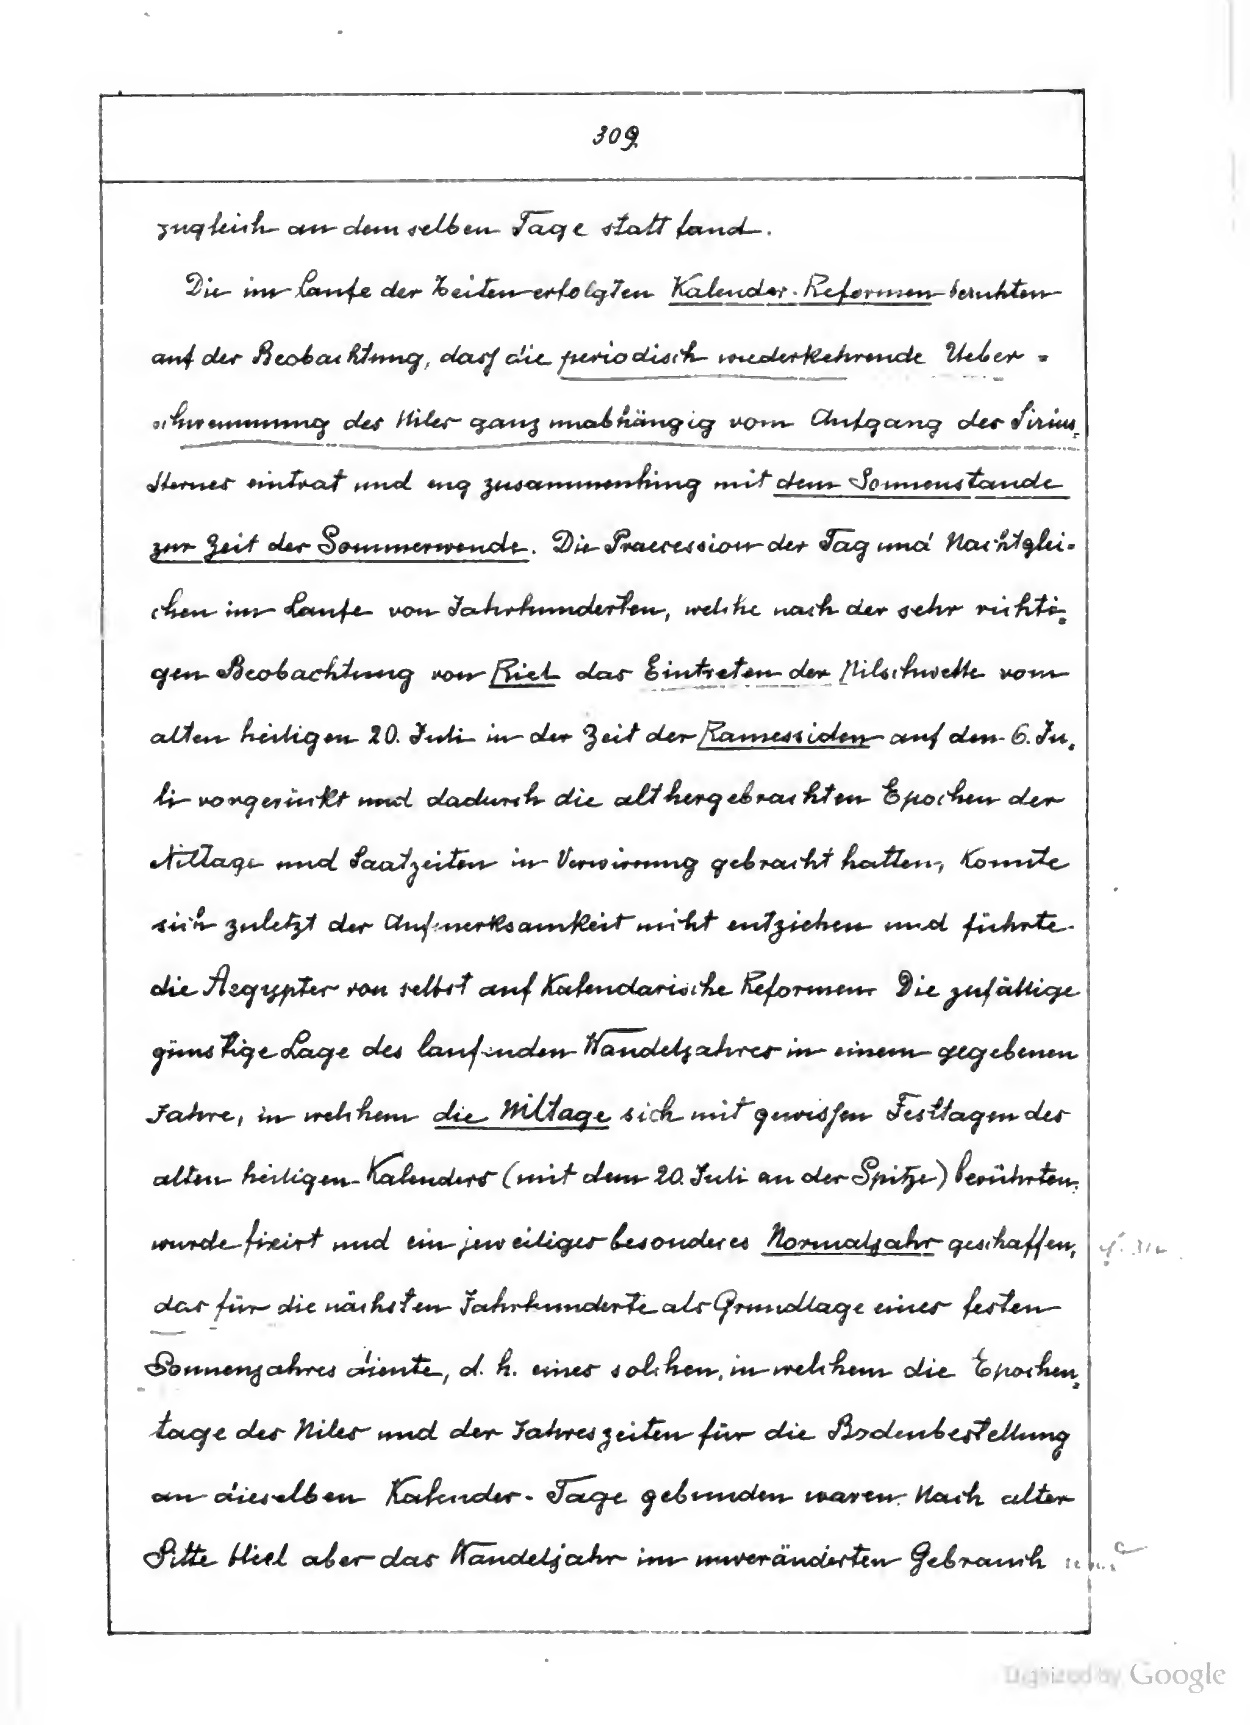 309.
zugleich an dem selben Tage statt fand.
Die im Laufe der Zeiten erfolgten Kalender-Reformen beruhten
auf der Beobachtung, dass die periodisch wiederkehrende Ueber=
schwemmung des Niles ganz unabhängig vom Aufgang des Sirius=
sternes eintrat und eng zusammenhing mit dem Sonnenstande
zur Zeit der Sommerwende. Die Praecession der Tag und Nachtglei=
chen im Laufe von Jahrhunderten, welche nach der sehr richti=
gen Beobachtung von Riel das Eintreten der Nilschwelle vom
alten heiligen 20. Juli in der Zeit der Ramessiden auf den 6. Ju=
li vorgerückt und dadurch die althergebrachten Epochen der
Niltage und Saatzeiten in Verwirrung gebracht hatten, konnte
sich zuletzt der Aufmerksamkeit nicht entziehen und führte
die Aegypter von selbst auf kalendarische Reformen. Die zufällige
günstige Lage des laufenden Wandeljahres in einem gegebenen
Jahre, in welchem die Niltage sich mit gewissen Festtagen des
alten heiligen Kalenders (mit dem 20. Juli an der Spitze) berührten,
wurde fixirt und ein jeweiliges besonderes Normaljahr geschaffen,
das für die nächsten Jahrhunderte als Grundlage eines festen
Sonnenjahres diente, d. h. eines solchen, in welchem die Epochen=
tage des Niles und der Jahreszeiten für die Bodenbestellung
an dieselben Kalender-Tage gebunden waren. Nach alter
Sitte blieb aber das Wandeljahr im unveränderten Gebrauch
Digitized by Google